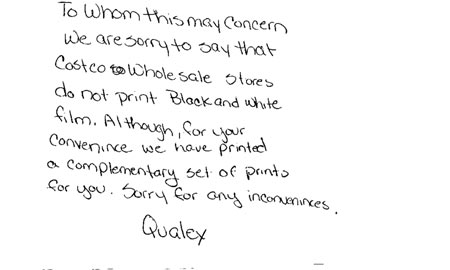 To Whom this may Concern
We are sorry to say that
Costco Wholesale Stores
do not print Black and white
film. Although, for your
Convenince we have printed
a complementary set of prints
for you. Sorry for any inconveninces.
Qualex